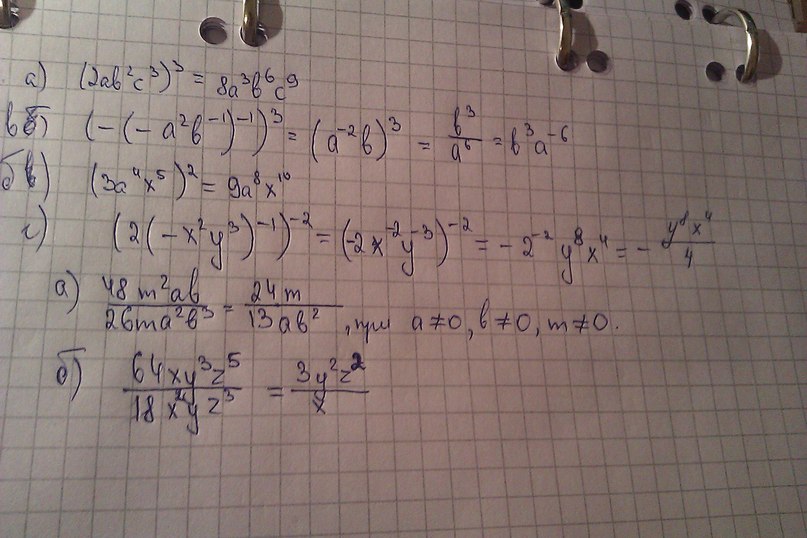 а) (2ab²c³)³ = 8a³b⁶c⁹
в) (-(-a²b⁻¹)⁻¹)³ = (a⁻²b)³ = b³/a⁶ = b³a⁻⁶
б) (3a⁴x⁵)² = 9a⁸x¹⁰
г) (2(-x²y³)⁻¹)⁻² = (-2x⁻²y⁻³)⁻² = -2⁻²y⁸x⁴ = - y⁸x⁴/4
а) 48m²ab/26ma²b³ = 24m/13ab², при a≠0, b≠0, m≠0.
б) 64xy³z⁵/18x²yz³ = 3y²z²/x